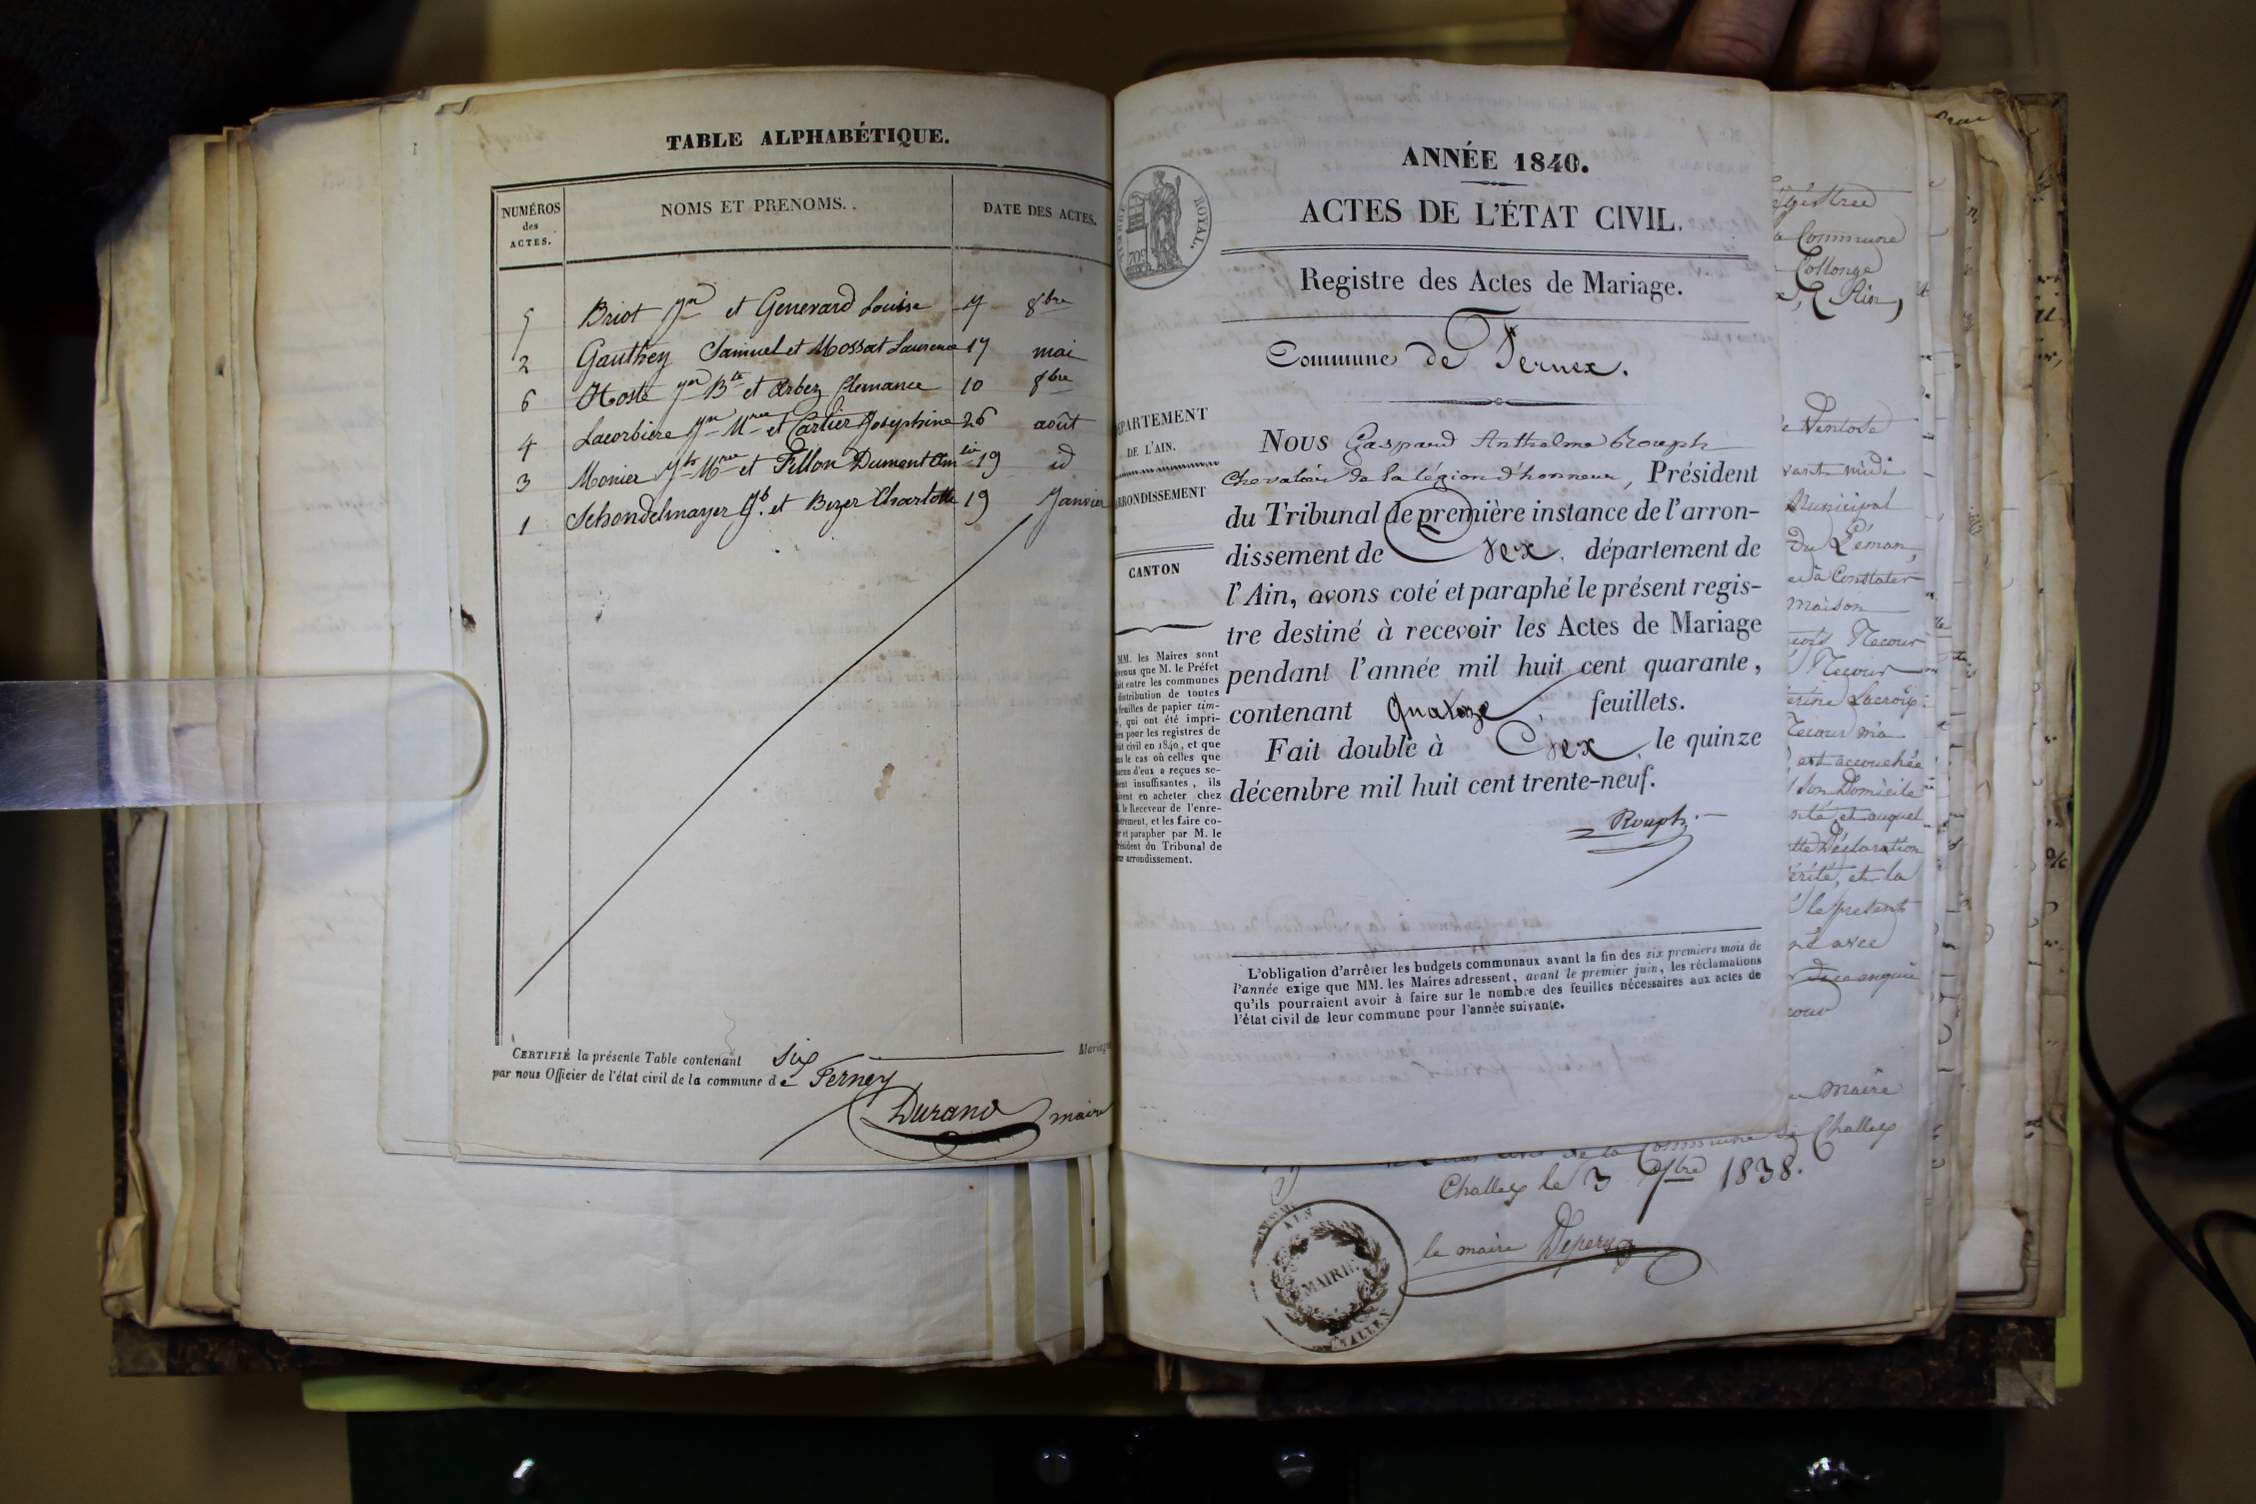 TABLE ALPHABÉTIQUE.
NUMÉROS des ACTES.
NOMS ET PRENOMS.
DATE DES ACTES.
5 Briot Jn et Genevard Louise 7 8bre
2 Gauthey Samuel et Mossat Laurence 17 mai
6 Hoste Jn Bte et Arbez Clemance 10 8bre
4 Lacorbiere Jn Mree et Cartier Josephine 26 août
3 Monier Mree et Fillon Dumont 19 id
1 Schondelmayer Jb. et Bezer Charlotte 19 Janvier
CERTIFIÉ la présente Table contenant six
par nous Officier de l'état civil de la commune de Ferney
Durand maire
ROYAL.
ANNÉE 1840.
ACTES DE L'ÉTAT CIVIL.
Registre des Actes de Mariage.
Commune de Fernex.
DE L'AIN.
CANTON
MM. les Maires sont
que M. le Préfet
entre les communes
distribution de toutes
feuilles de papier tim-
, qui ont été impri-
pour les registres de
civil en 1840, et que
le cas où celles que
d'eux a reçues se-
insuffisantes, ils
en acheter chez
le Receveur de l'enre-
et les faire co-
et parapher par M. le
Président du Tribunal de
arrondissement.
Nous Gaspard Anthelme Rouph
Chevalier de la légion d'honneur, Président
du Tribunal de première instance de l'arron-
dissement de Gex, département de
l'Ain, avons coté et paraphé le présent regis-
tre destiné à recevoir les Actes de Mariage
pendant l'année mil huit cent quarante,
contenant quatorze feuillets.
Fait double à Gex le quinze
décembre mil huit cent trente-neuf.
Rouph
L'obligation d'arrêter les budgets communaux avant la fin des six premiers mois de
l'année exige que MM. les Maires adressent, avant le premier juin, les réclamations
qu'ils pourraient avoir à faire sur le nombre des feuilles nécessaires aux actes de
l'état civil de leur commune pour l'année suivante.
Commune
Collonge
Ventose
midi
Municipal
du Léman,
Constater
maison
Lacroix
est accouchée
son Domicile
et auquel
Déclaration
et la
le présent
avec
maire
de la Commune de Challex
Challex le 3 7bre 1838.
le maire Depery
AIN
MAIRIE
CHALLEX